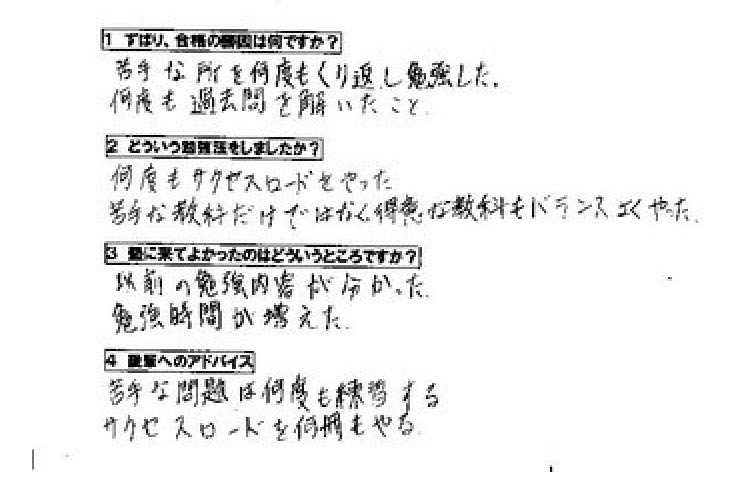 1 ずばり、合格の勝因は何ですか？
苦手な所を何度もくり返し勉強した。
何度も過去問を解いたこと。
2 どういう勉強法をしましたか？
何度もサクセスロードをやった
苦手な教科だけではなく得意な教科もバランスよくやった。
3 塾に来てよかったのはどういうところですか？
以前の勉強内容が分かった。
勉強時間が増えた。
4 後輩へのアドバイス
苦手な問題は何度も練習する
サクセスロードを何冊もやる。